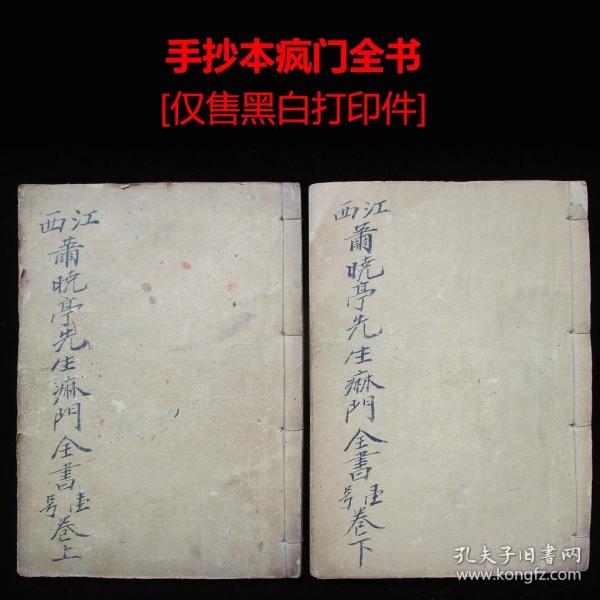 手抄本疯门全书
[仅售黑白打印件]
江西蕭曉亭先生痲門全書号卷上
江西蕭曉亭先生痲門全書号卷下
孔夫子旧书网
www.kongfz.com